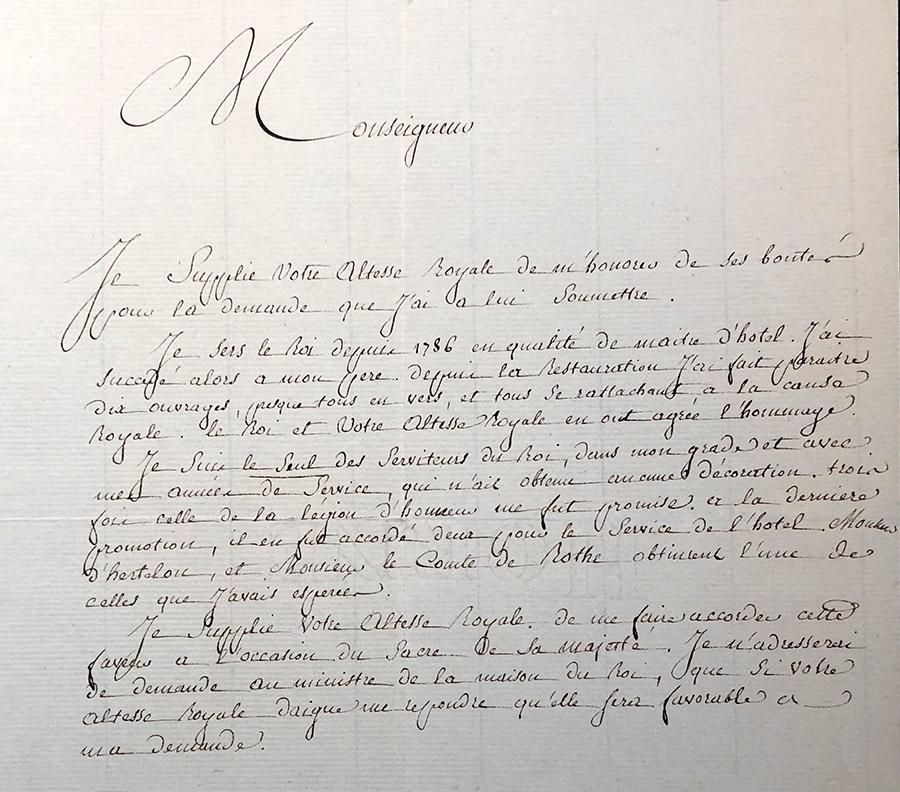 Monseigneur
Je Supplie Votre Altesse Royale de m'honorer de ses bontés
pour la demande que J'ai a lui Soumettre .
Je sers le Roi depuis 1786 en qualité de maitre d'hotel . J'ai
succédé alors a mon pere . depuis la Restauration J'ai fait paraitre
dix ouvrages, presque tous en vers, et tous se rattachant a la causa
Royale . le Roi et Votre Altesse Royale en ont agréé l'hommage .
Je Suis le Seul des Serviteurs du Roi, dans mon grade et avec
mes années de Service, qui n'ait obtenu aucune décoration . trois
fois celle de la légion d'honneur me fut promise . a la derniere
promotion, il en fut accordé deux pour le Service de l'hotel . Monsieur
d'hertelon, et Monsieur le Comte de Rothe obtinrent l'une de
celles que J'avais esperées .
Je Supplie Votre Altesse Royale . de me faire accorder cette
faveur a l'occasion du Sacre De Sa majesté . Je n'adresserai
de demande au ministre de la maison du Roi, que Si votre
altesse Royale daigne me repondre qu'elle sera favorable a
ma demande .